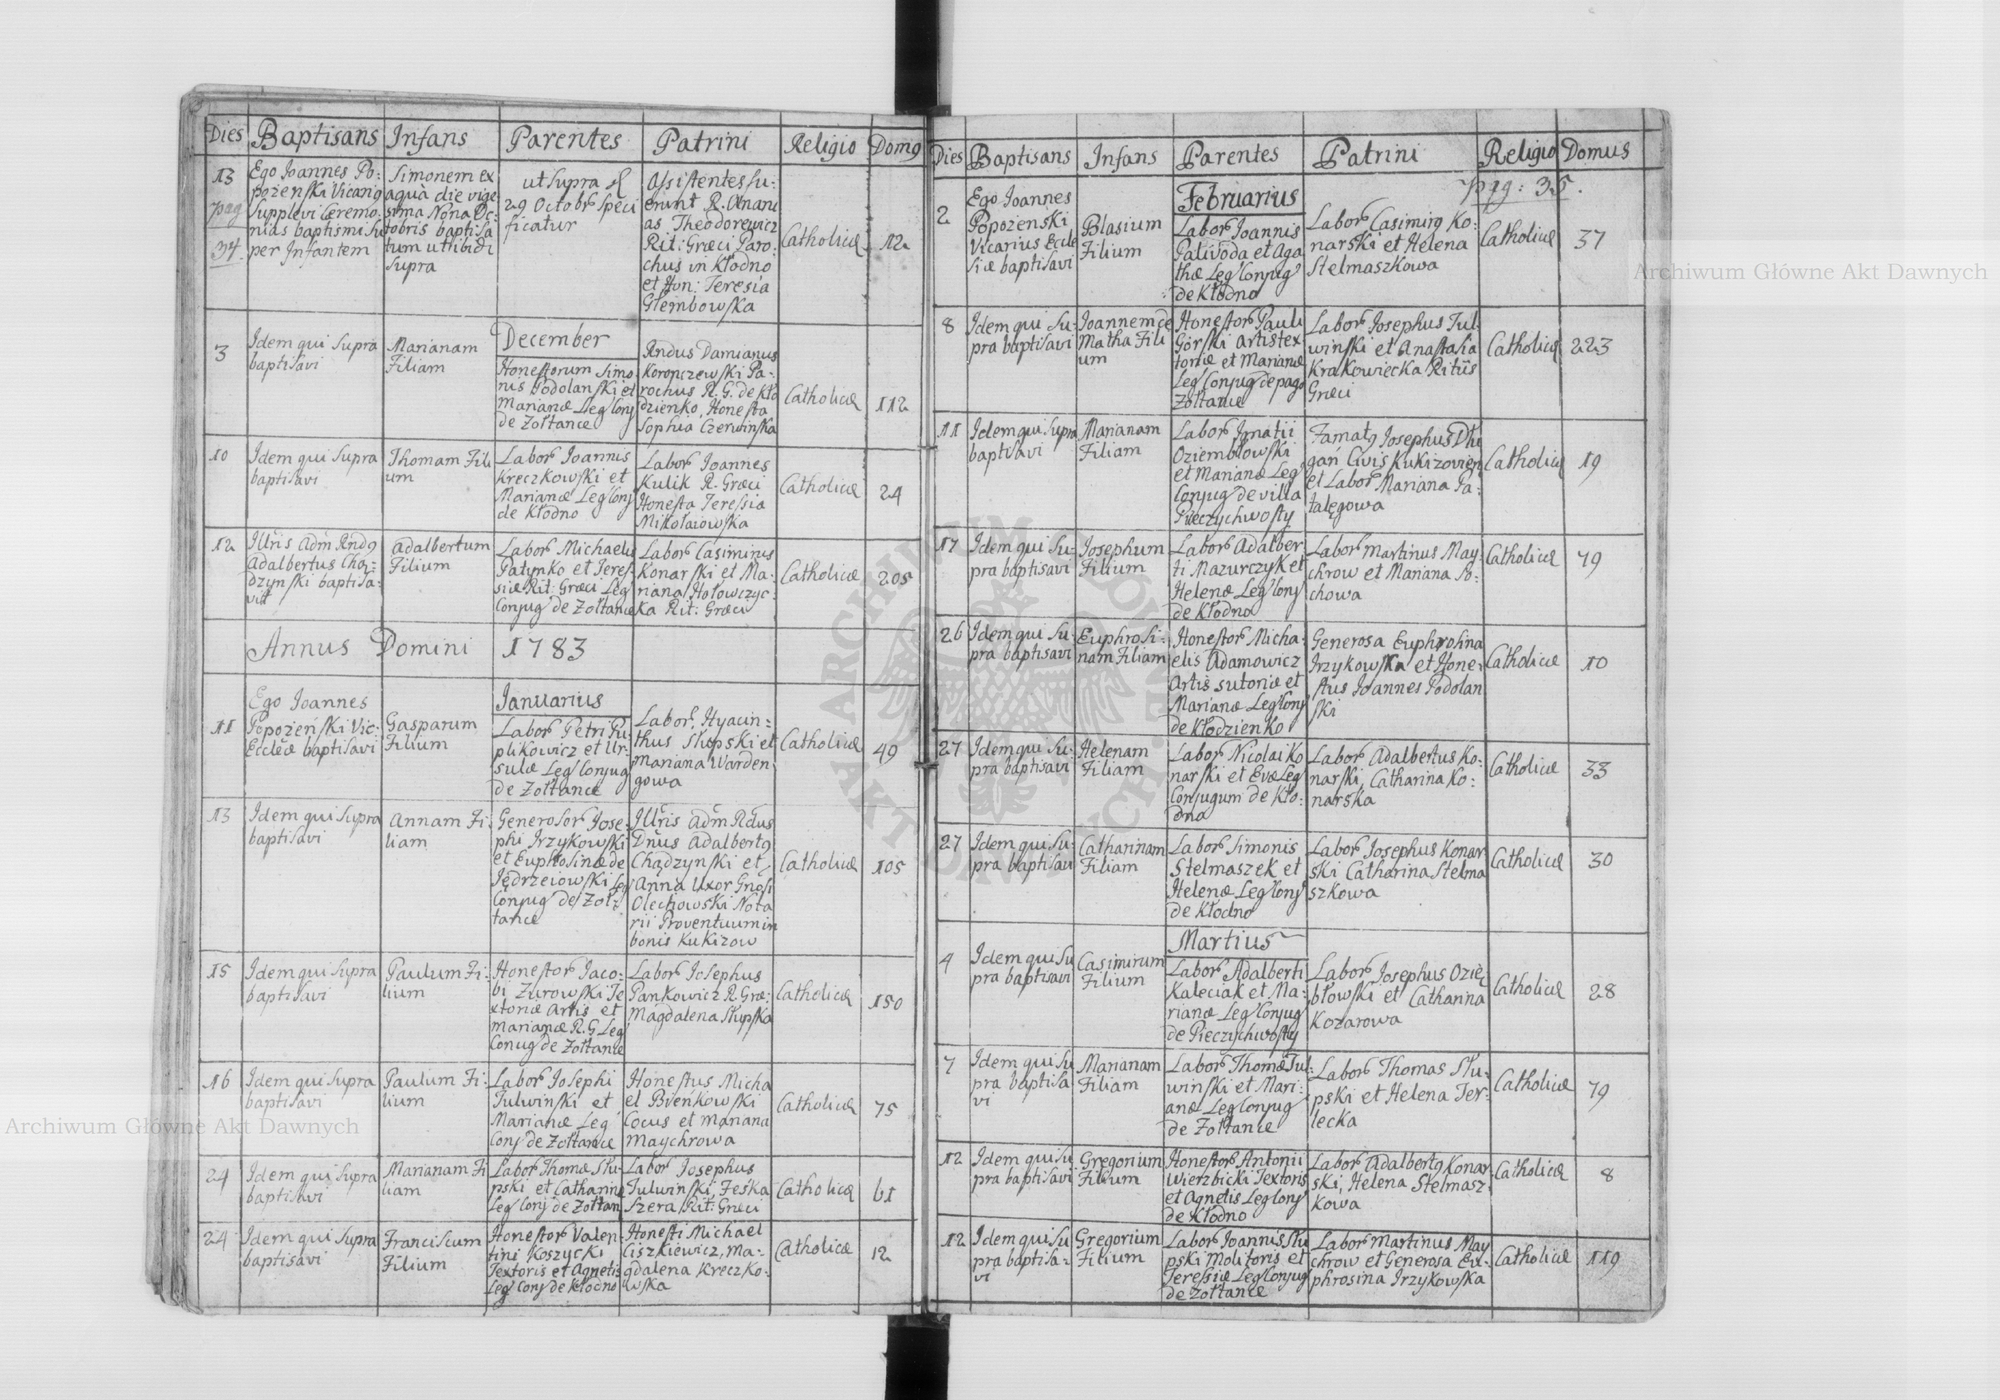 Dies Baptisans Infans Parentes Patrini Religio Domq
13
pag
34.
Ego Ioannes Po-
pozenski Vicariq
Supplevi Ceremo-
nias baptismi Su
per Infantem
Simonem ex
aquà die vige
sima Nona Oc-
tobris baptisa
tum ut tibidi
supra
ut supra
29 Octobr speci
ficatur
Assistentes fu-
erunt R. Atnani
as Theodorewicz
Rit: Græci Paro-
chus in Kłodno
et Hon: Teresia
Głembowska
Catholicæ
12
3
Idem qui supra
baptisavi
Marianam
Filiam
December
Honestorum Simo
nis Podolanski et
Marianæ Leg Conj
de Zołtance
Rndus Damianus
Koronczewski Pa-
rochus R. G. de Kło
dzienko, Honesta
Sophia Czerwinska
Catholicæ
112
10
Idem qui supra
baptisavi
Thomam Fili
um
Labor Ioannis
Kreczkowski et
Marianæ Leg Conj
de Kłodno
Labor Ioannes
Kulik R. Græci
Honesta Teressia
Mikołaiowska
Catholicæ
24
12
Illris Adm Rndq
Adalbertus Chą-
dzynski baptisa-
vit
Adalbertum
Filium
Labor Michaelis
Patynko et Teres-
siæ Rit: Græci Leg
Conjug de Zołtance
Labor Casimirus
Konarski et Ma-
riana Hołowczyc-
ka Rit: Græci
Catholicæ
205
Annus Domini 1783
11
Ego Ioannes
Popozeński Vic:
Ecclæ baptisavi
Gasparum
Filium
Ianuarius
Labor Petri Pu
plikowicz et Ur-
sulæ Leg Conjug
de Zołtance
Labor, Hyacin-
thus Słupski et
Mariana Warden-
gowa
Catholicæ
49
13
Idem qui supra
baptisavi
Annam Fi-
liam
Generosor Iose-
phi Irzykowski
et Euphrosinæ de
Iędrzeiowski Leg
Conjug de Zoł-
tance
Illris Adm Rdus
Dnus Adalbertq
Chądzynski et
Anna Uxor Gnosi
Olechowski Nota
rii Proventuum in
bonis Kukizow
Catholicæ
105
15
Idem qui supra
baptisavi
Paulum Fi-
lium
Honestor Iaco-
bi Zurowski Te
xtoriæ Artis et
Marianæ R. G Leg
Coniug de Zołtance
Labor Iosephus
Pankowicz R. Græ:
Magdalena Słupska
Catholicæ
150
16
Idem qui supra
baptisavi
Paulum Fi-
lium
Labor Iosephi
Tulwinski et
Marianæ Leg
Conj de Zołtance
Honestus Micha
el Bienkowski
Cocus et Mariana
Maychrowa
Catholicæ
75
24
Idem qui supra
baptisavi
Marianam Fi
liam
Labor Thomæ Słu-
pski et Catharinæ
Leg Conj de Zołtan
Labor Iosephus
Tulwinski, Feska
Szera Rit: Græci
Catholicæ
61
24
Idem qui supra
baptisavi
Franciscum
Filium
Honestor Valen-
tini Koszycki
Textoris et Agnetis
Leg Conj de Kłodno
Honesti Michael
Ciszkiewicz, Ma-
gdalena Kreczko-
wska
Catholicæ
12
Dies Baptisans Infans Parentes Patrini Religio Domus
pag: 35.
2
Ego Ioannes
Popozenski
Vicarius Eccle
siæ baptisavi
Blasium
Filium
Februarius
Labor Ioannis
Paliwoda et Aga
thæ Leg Conjug
de Kłodno
Labor Casimirq Ko-
narski et Helena
Stelmaszkowa
Catholicæ
37
8
Idem qui su-
pra baptisavi
Ioannem de
Matha Fili
um
Honestor Pauli
Górski Artis tex
toriæ et Marianæ
Leg Conjug de pago
Zołtance
Labor Iosephus Tul
winski et Anastasia
Krakowiecka Ritûs
Græci
Catholicæ
223
11
Idem qui supra
baptisavi
Marianam
Filiam
Labor Ignatii
Oziembłowski
et Marianæ Leg
Conjug de villa
Pieczychwosty
Famatq Iosephus Dłu
gań Civis Kukizovien
et Labor Mariana Pa-
talęgowa
Catholicæ
19
17
Idem qui su-
pra baptisavi
Iosephum
Filium
Labor Adalber
ti Mazurczyk et
Helenæ Leg Conj
de Kłodno
Labor Martinus May-
chrow et Mariana So-
chowa
Catholicæ
79
26
Idem qui su-
pra baptisavi
Euphrosi-
nam Filiam
Honestor Micha-
elis Adamowicz
Artis sutoriæ et
Marianæ Leg Conj
de Kłodzienko
Generosa Euphrosina
Irzykowska et Hone-
stus Ioannes Podolan
ski
Catholicæ
10
27
Idem qui su-
pra baptisavi
Helenam
Filiam
Labor Nicolai Ko
narski et Evæ Leg
Conjugum de Kło-
dno
Labor Adalbertus Ko-
narski, Catharina Ko-
narska
Catholicæ
33
27
Idem qui su-
pra baptisavi
Catharinam
Filiam
Labor Simonis
Stelmaszek et
Helenæ Leg Conj
de Kłodno
Labor Iosephus Konar
ski Catharina Stelma
szkowa
Catholicæ
30
4
Idem qui su
pra baptisavi
Casimirum
Filium
Martius
Labor Adalberti
Kaleciak et Ma-
rianæ Leg Conjug
de Pieczychwosty
Labor Iosephus Ozię
błowski et Catharina
Kozarowa
Catholicæ
28
7
Idem qui su
pra baptisa-
vi
Marianam
Filiam
Labor Thomæ Tul-
winski et Mari-
anæ Leg Conjug
de Zołtance
Labor Thomas Słu-
pski et Helena Ter-
lecka
Catholicæ
79
12
Idem qui su
pra baptisavi
Gregorium
Filium
Honestor Antonii
Wierzbicki Textoris
et Agnetis Leg Conj
de Kłodno
Labor Adalbertq Konar
ski, Helena Stelmasz-
kowa
Catholicæ
8
12
Idem qui su-
pra baptisa-
vi
Gregorium
Filium
Labor Ioannis Słu
pski Molitoris et
Teressiæ Leg Conjug
de Zołtance
Labor Martinus May
chrow et Generosa Eu-
phrosina Irzykowska
Catholicæ
119
Archiwum Główne Akt Dawnych
Archiwum Główne Akt Dawnych
ARCHIWUM GŁÓWNE AKT DAWNYCH